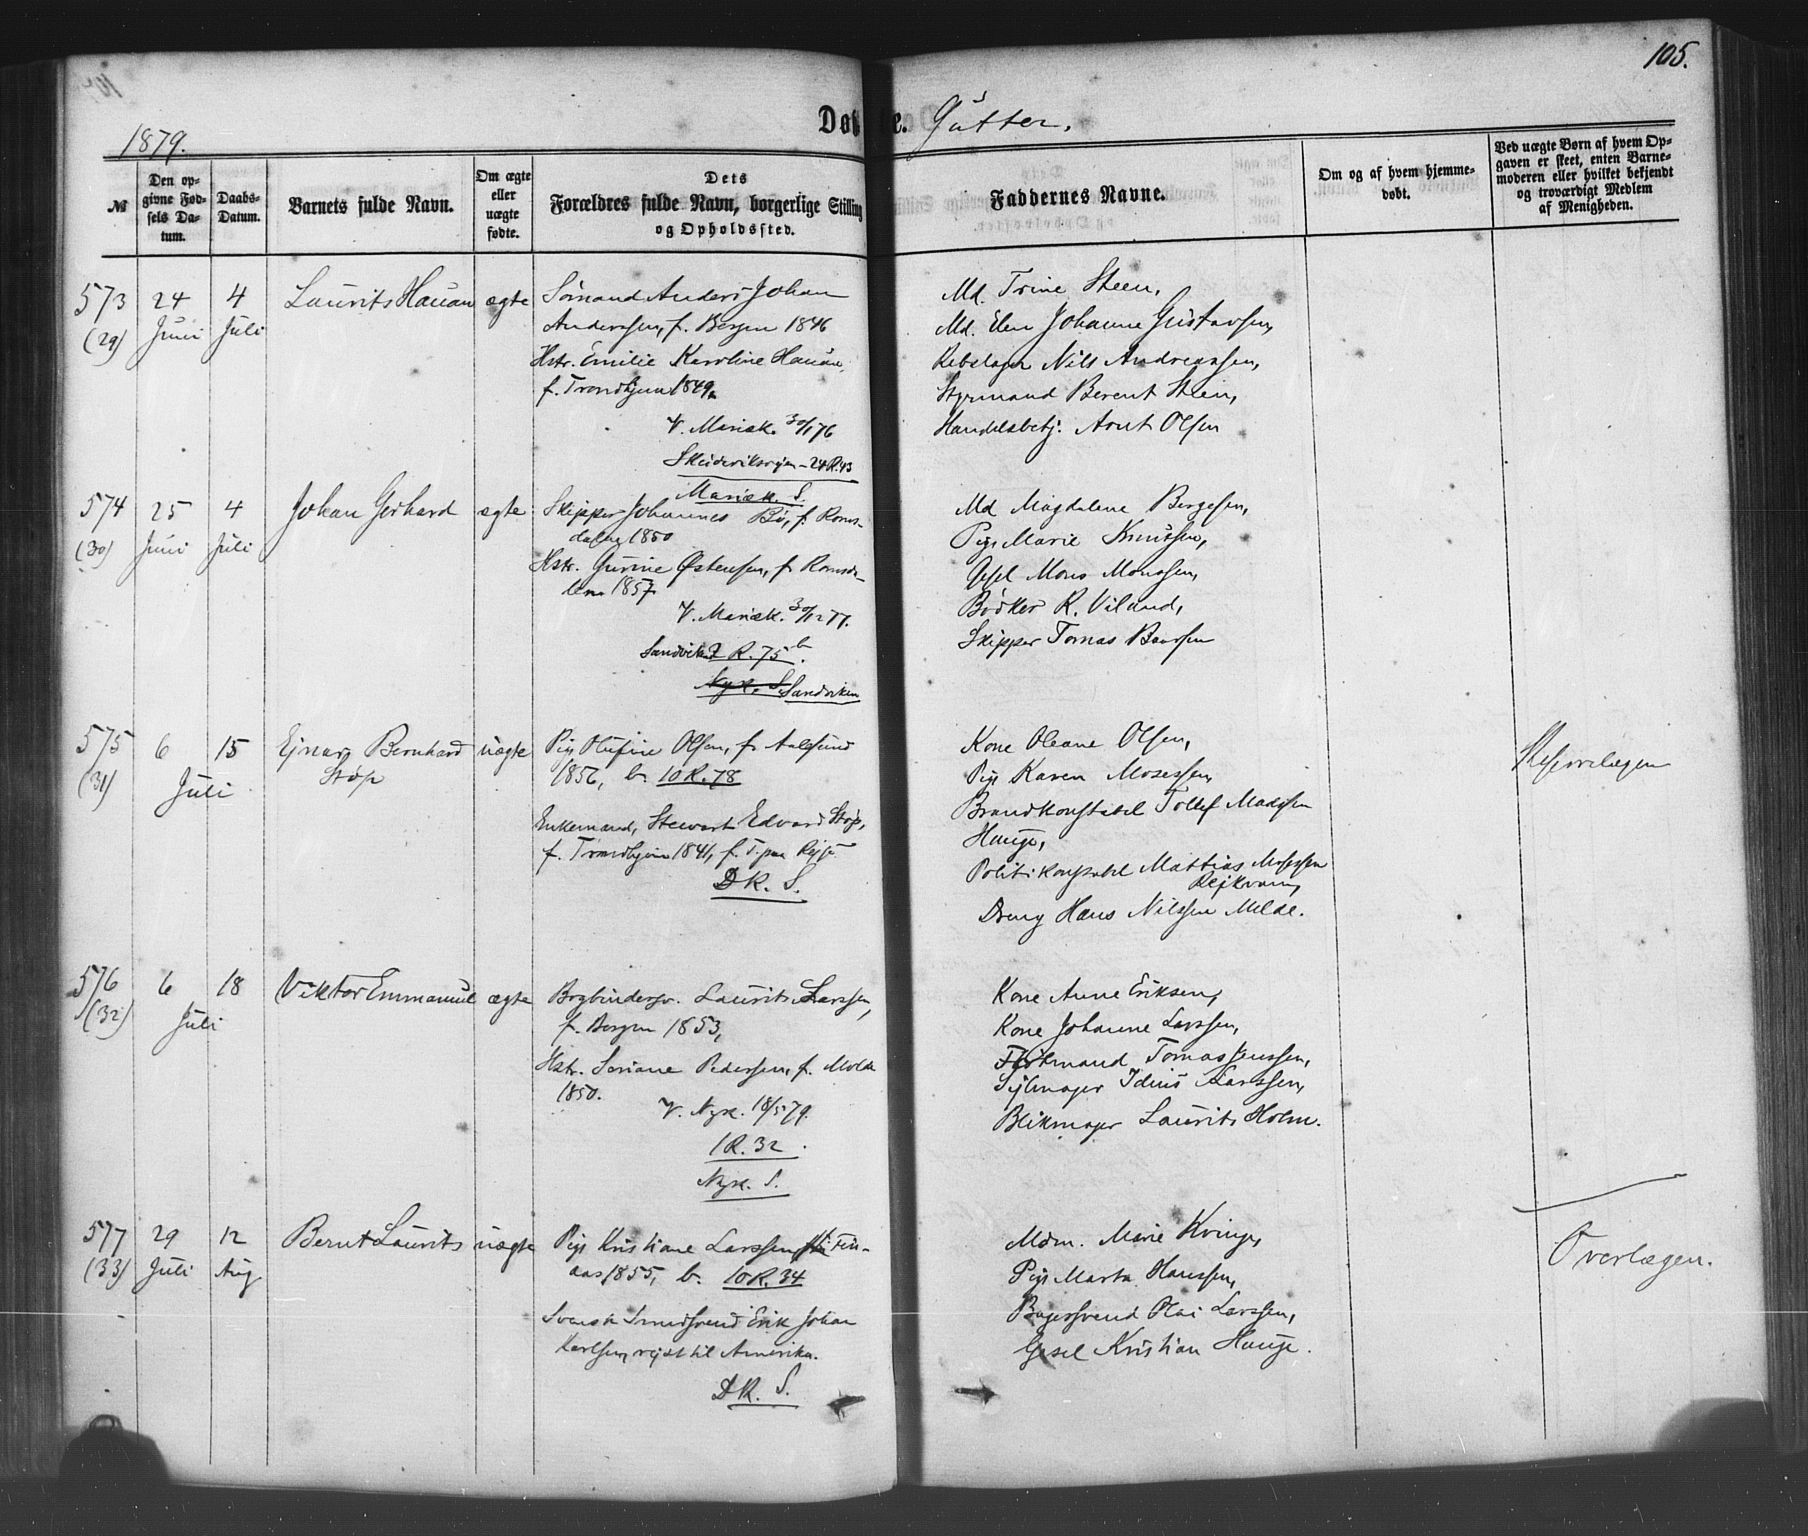 105.
1879.
Døbte. Gutter.
№
Den op-
givne Fød-
sels Da-
tum.
Daabs-
Datum.
Barnets fulde Navn.
Om ægte
eller
uægte
fødte.
Dets
Forældres fulde Navn, borgerlige Stilling
og Opholdssted.
Faddernes Navne.
Om og af hvem hjemme-
døbt.
Ved uægte Børn af hvem Op-
gaven er skeet, enten Barne-
moderen eller hvilket bekjendt
og troværdigt Medlem
af Menigheden.
573
(29)
24
Juni
4
Juli
Laurits Hauan
ægte
Sømand Anders Johan
Anderssen, f. Bergen 1846
Hstr. Emilie Karoline Hauan,
f. Trondhjem 1849,
V. Mariæk. 30/1 76
24 R. 43
Mariæk. S.
Md. Trine Steen,
Md. Elen Johanne Gustavsen,
Rebslager Nils Andreassen,
Styrmand Berent Steen,
Handelsbetj. Arnt Olsen
574
(30)
25
Juni
4
Juli
Johan Gerhard
ægte
Skipper Johannes Bø, f. Roms-
dalen 1850
Hstr. Gurine Østensen, f. Romsda-
len 1857
V. Mariæk. 30/12 77.
Sandvik. 2 R. 75 b.
Nyk. S. Sandviken
Md Magdalene Bergesen,
Pige Marie Knutssen,
Gesel Mons Monssen,
Bødker R. Viland,
Skipper Tomas Baarsen
575
(31)
6
Juli
15
Ejnar Bernhard
Støp
uægte
Pige Olufine Olsen, f. Aalesund
1856, b. 10 R. 78
Enkemand, Stewart Edvard Støp,
f. Trondhjem 1841, f. T. paa Rejse
DK. S.
Kone Oleane Olsen,
Pige Karen Mosessen,
Brandkonstabel Tollef Madssen
Hauge,
Politikonstabel Mattias Mosessen
Rejkvam,
Dreng Hans Nilssen Milde.
576
(32)
6
Juli
18
Viktor Emmanuel
ægte
Bogbindersv. Laurits Larssen,
f. Bergen 1853,
Hstr. Seriane Pederssen, f. Molde
1850.
V. Nyk. 18/5 79.
1 R. 32
Nyk. S.
Kone Anne Eriksen,
Kone Johanne Larssen,
Tomas Jenssen,
Sejlmager Larssen,
Blikmager Laurits Holm.
577
(33)
29
Juli
12
Aug
Bernt Laurits
uægte
Pige Kristiane Larssen,
1855, b. 10 R. 34
Svensk Smedsvend Erik Johan
Karlsen, rejst til Amerika.
DK. S.
Mdm. Marie Kvinge,
Pige Marta Hanssen,
Bagersvend Olai Larssen,
Gesel Kristian Hauge.
Overlægen.